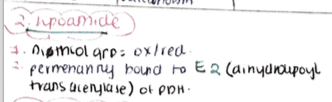 2. Lipoamide
1. Dithiol grp: ox/red.
2. permenantly bound to E2 (dihydrolipoyl
transacetylase) of PDH.